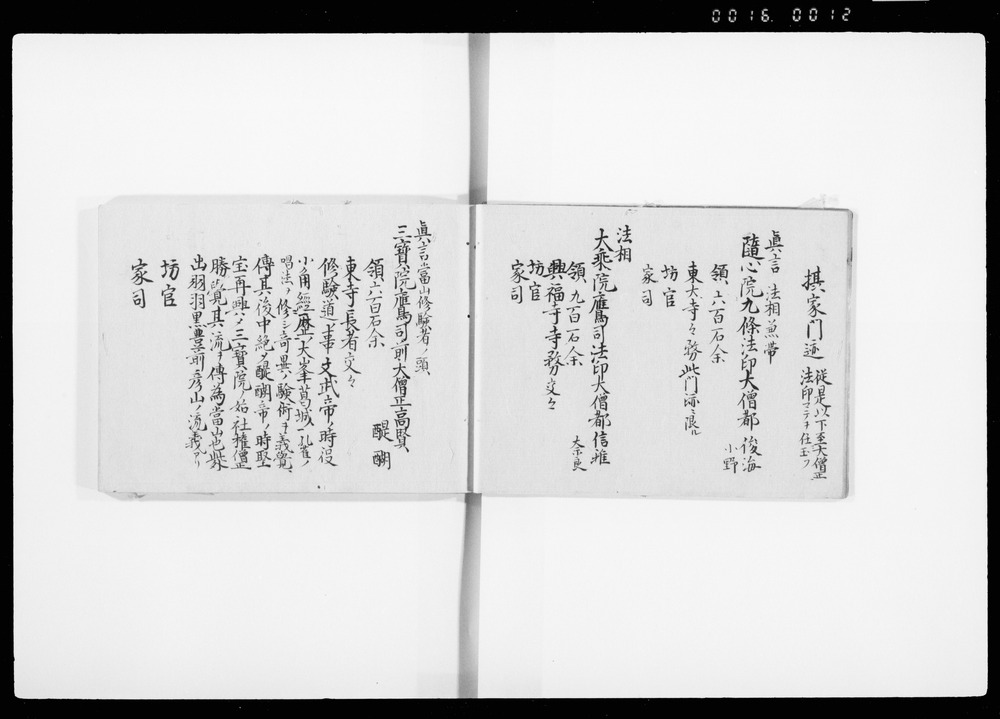 0016. 0012
摂家门迹 従是以下至大僧正
法印マテヲ任玉フ
真言 法相兼帯
隨心院九條法印大僧都 後海
小野
領六百石余
東大寺々務此門跡ニ限ル
坊官
家司
法相
大乗院鷹司法印大僧都信雅
大奈良
領九百石余
興福寺寺務交々
坊官
家司
真言當山修験者ノ頭
三寳院鷹司前大僧正高賢
醍醐
領六百石余
東寺長者交々
修驗道ノ事文武帝ノ時役
小角經歴大峯葛城一孔雀ノ
唱法ヲ修シ奇異ノ験術ヲ義覺
傳其後中絶ス醍醐帝ノ時聖
宝再興ス三寳院ノ始社権僧正
勝覺其流ヲ傳為當山也此外
出羽羽黒豊前彦山ノ流義アリ
坊官
家司